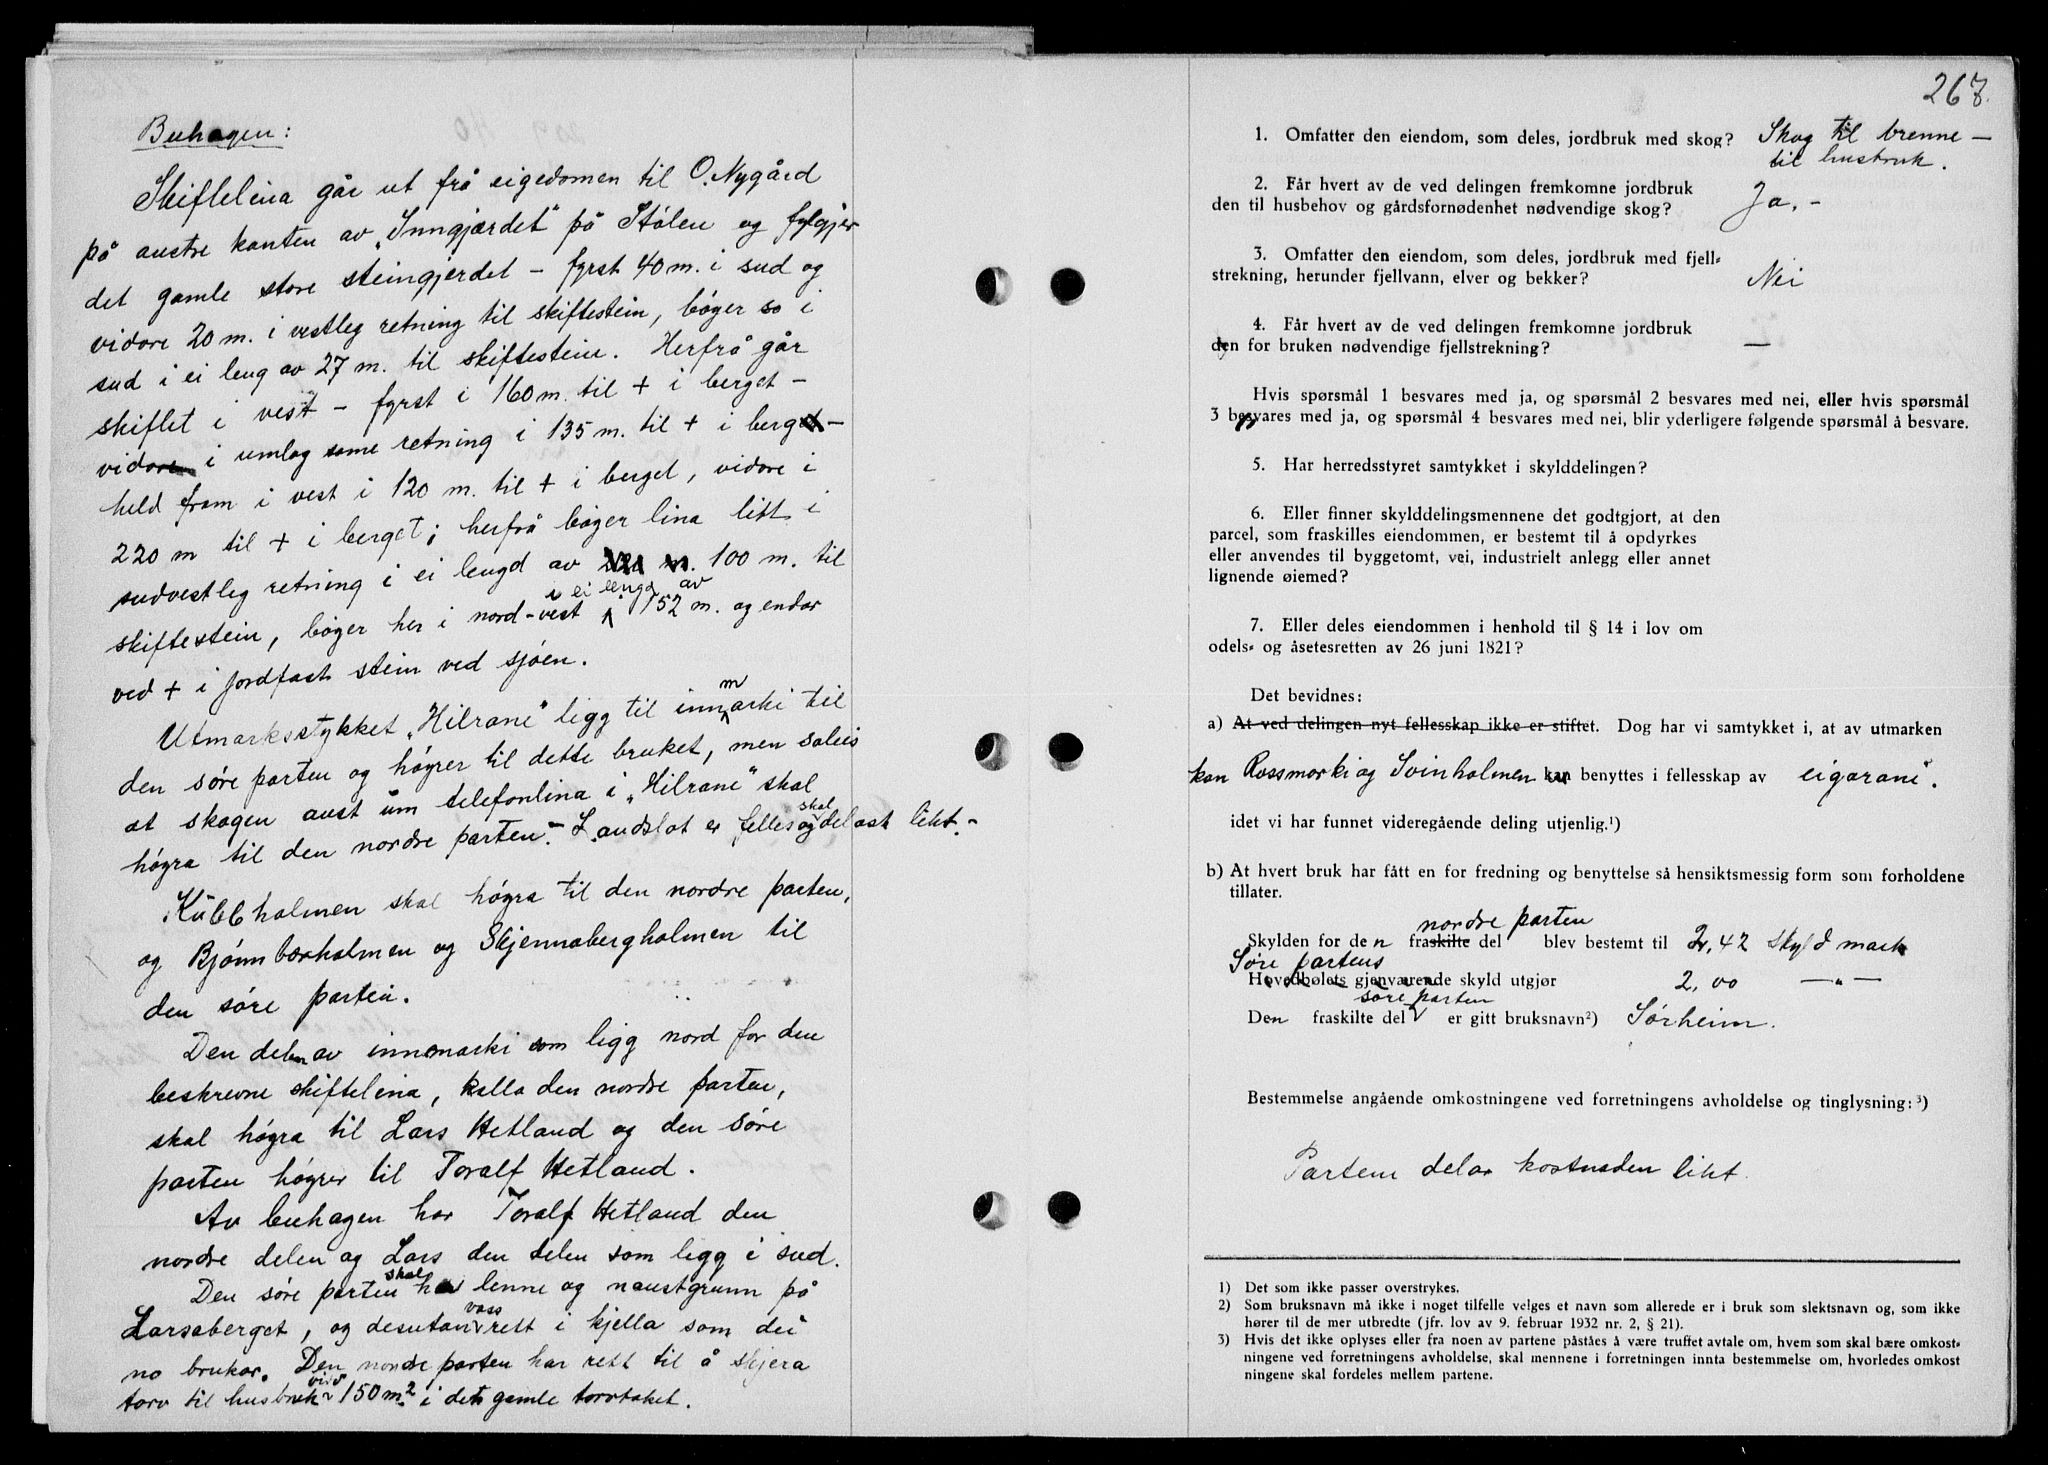 Buhagen:
Skiftelina går ut frå eigedomen til O. Nygård
på austre kanten av "Inngjærdet" på Stølen og fylgjer
det gamle store steingjerdet - fyrst 40 m. i sud og
vidare 20 m. i vestleg retning til skiftestein, bøger so i
sud i ei leng av 27 m. til skiftestein. Herfrå går
skiftet i vest - fyrst i 160 m. til + i berget -
vidare i umlag same retning i 135 m. til + i berget -
held fram i vest i 120 m. til + i berget, vidare i
220 m til + i berget; herfrå bøger lina litt i
sudvestleg retning i ei lengd av 100 m. til
skiftestein, bøger her i nord-vest i ei lengd av 152 m. og endar
ved + i jordfast stein ved sjøen.
Utmarksstykket "Hilrane" ligg til innmarki til
den søre parten og høyrer til dette bruket, men soleis
at skogen aust um telefonlina i "Hilrane" skal
høyra til den nordre parten. - Landslot er felles og skal delast likt. -
Kubbholmen skal høyra til den nordre parten,
og Bjørnbærholmen og Skjennabergholmen til
den søre parten.
Den delen av innmarki som ligg nord for den
beskrevne skiftelina, kalla den nordre parten,
skal høyra til Lars Hetland og den søre
parten høyrer til Toralf Hetland.
Av buhagen har Toralf Hetland den
nordre delen og Lars den delen som ligg i sud.
Den søre parten skal ha lenne og naustgrunn på
Larsaberget, og desutan vassrett i kjella som dei
no brukar. Den nordre parten har rett til å skjera
torv til husbruk 150 m² i det gamle torvtaket.
267.
1. Omfatter den eiendom, som deles, jordbruk med skog? Skog til brenne -
til husbruk.
2. Får hvert av de ved delingen fremkomne jordbruk
den til husbehov og gårdsfornødenhet nødvendige skog? Ja. -
3. Omfatter den eiendom, som deles, jordbruk med fjell-
strekning, herunder fjellvann, elver og bekker? Nei
4. Får hvert av de ved delingen fremkomne jordbruk
den for bruken nødvendige fjellstrekning? —
Hvis spørsmål 1 besvares med ja, og spørsmål 2 besvares med nei, eller hvis spørsmål
3 besvares med ja, og spørsmål 4 besvares med nei, blir yderligere følgende spørsmål å besvare.
5. Har herredsstyret samtykket i skylddelingen?
6. Eller finner skylddelingsmennene det godtgjort, at den
parcel, som fraskilles eiendommen, er bestemt til å opdyrkes
eller anvendes til byggetomt, vei, industrielt anlegg eller annet
lignende øiemed?
7. Eller deles eiendommen i henhold til § 14 i lov om
odels- og åsetesretten av 26 juni 1821?
Det bevidnes:
a) At ved delingen nyt fellesskap ikke er stiftet. Dog har vi samtykket i, at av utmarken
kan Rossmarki og Svinholmen kan benyttes i fellesskap av eigarane.
idet vi har funnet videregående deling utjenlig.¹)
b) At hvert bruk har fått en for fredning og benyttelse så hensiktsmessig form som forholdene
tillater.
nordre parten
Skylden for den fraskilte del blev bestemt til 2,42 skyld mark
Søre partens
Hovedbølets gjenværende skyld utgjør 2,00 — " —
søre parten
Den fraskilte del er gitt bruksnavn²) Sørheim.
Bestemmelse angående omkostningene ved forretningens avholdelse og tinglysning:³)
Partene delar kostnaden likt.
1) Det som ikke passer overstrykes.
2) Som bruksnavn må ikke i noget tilfelle velges et navn som allerede er i bruk som slektsnavn og, som ikke
hører til de mer utbredte (jfr. lov av 9. februar 1932 nr. 2, § 21).
3) Hvis det ikke oplyses eller fra noen av partene påståes å være truffet avtale om, hvem som skal bære omkost-
ningene ved forretningens avholdelse, skal mennene i forretningen innta bestemmelse om, hvorledes omkost
ningene skal fordeles mellem partene.